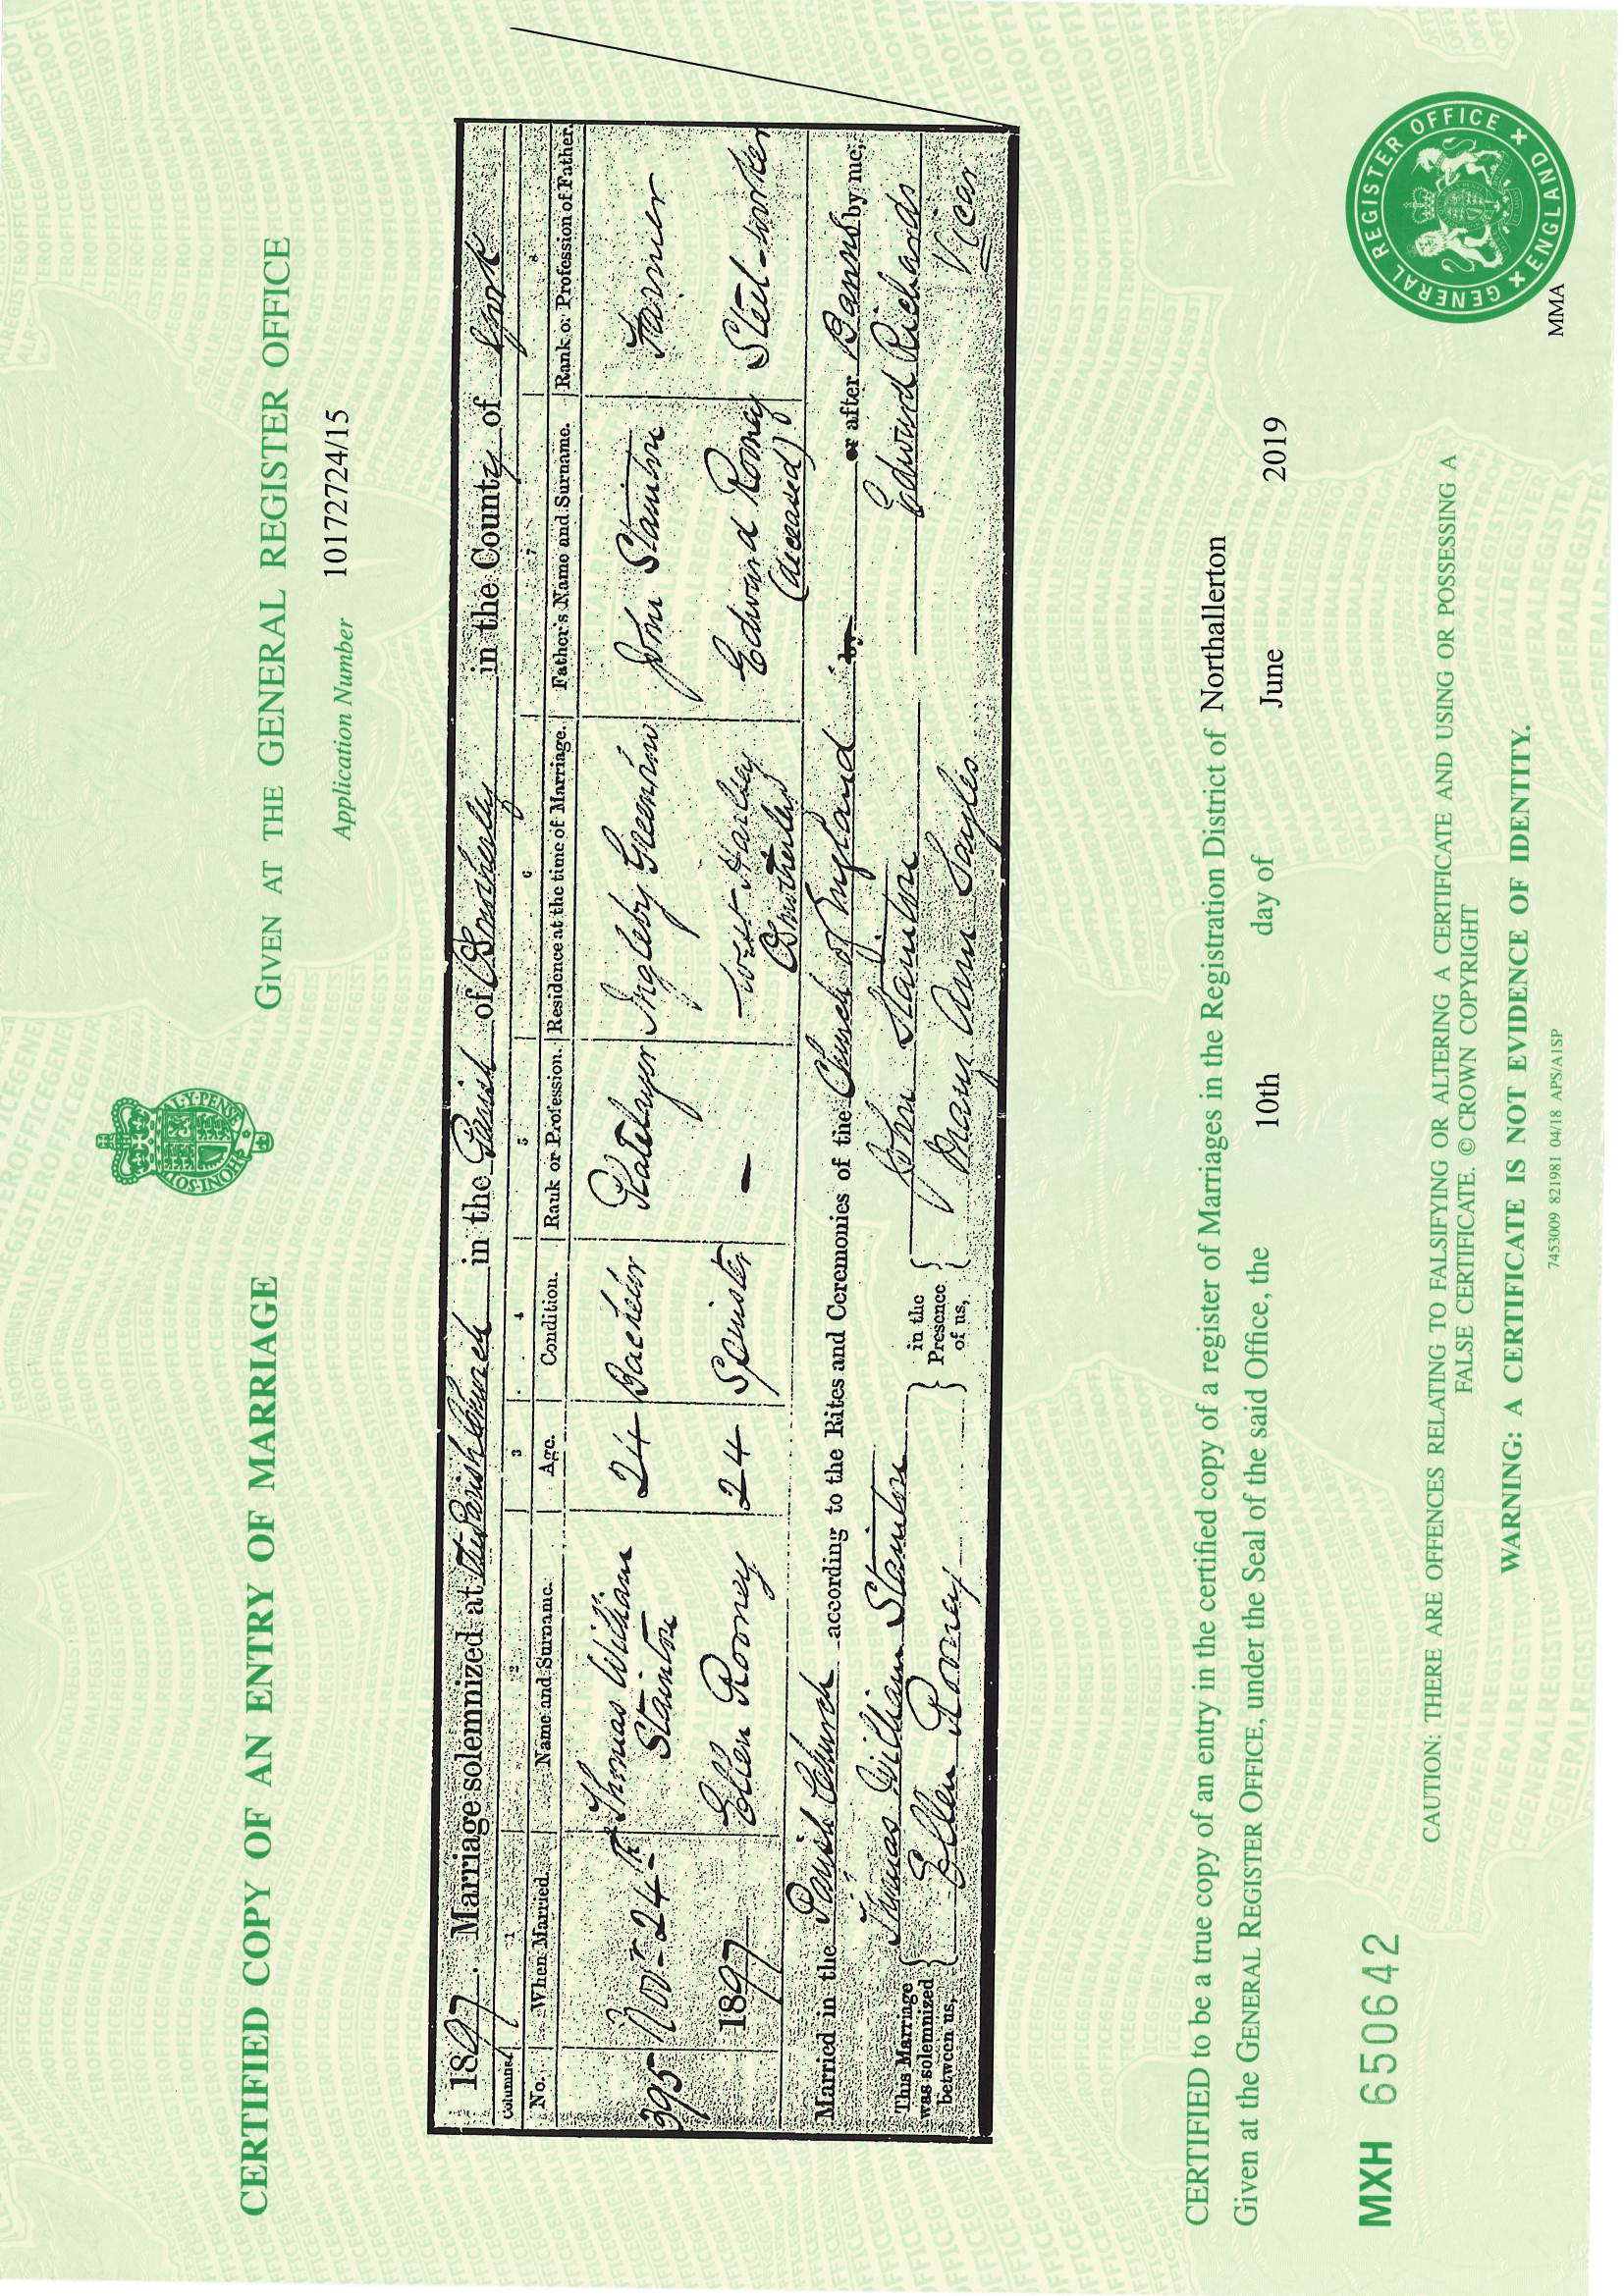 CERTIFIED COPY OF AN ENTRY OF MARRIAGE
GIVEN AT THE GENERAL REGISTER OFFICE
Application Number 10172724/15
1897. Marriage solemnized at the Parish Church in the Parish of Osmotherley in the County of York
Columns 1 2 3 4 5 6 7 8
No. When Married. Name and Surname. Age. Condition. Rank or Profession. Residence at the time of Marriage. Father's Name and Surname. Rank or Profession of Father.
395 Novr 24th Thomas William Stainton 24 Bachelor Platelayer Ingleby Greenhow John Stainton Farmer
1897 Ellen Rooney 24 Spinster — West Harlsey Osmotherley Edward Rooney (deceased) Steel-worker
Married in the Parish Church according to the Rites and Ceremonies of the Church of England by or after Banns by me,
This Marriage was solemnized between us, Thomas William Stainton Ellen Rooney in the Presence of us, John Stainton Mary Ann Sayles Edward Richards Vicar
CERTIFIED to be a true copy of an entry in the certified copy of a register of Marriages in the Registration District of Northallerton
Given at the GENERAL REGISTER OFFICE, under the Seal of the said Office, the 10th day of June 2019
MXH 650642
CAUTION: THERE ARE OFFENCES RELATING TO FALSIFYING OR ALTERING A CERTIFICATE AND USING OR POSSESSING A
FALSE CERTIFICATE. © CROWN COPYRIGHT
WARNING: A CERTIFICATE IS NOT EVIDENCE OF IDENTITY.
7453009 821981 04/18 APS/A1SP
MMA
GENERAL REGISTER OFFICE
ENGLAND